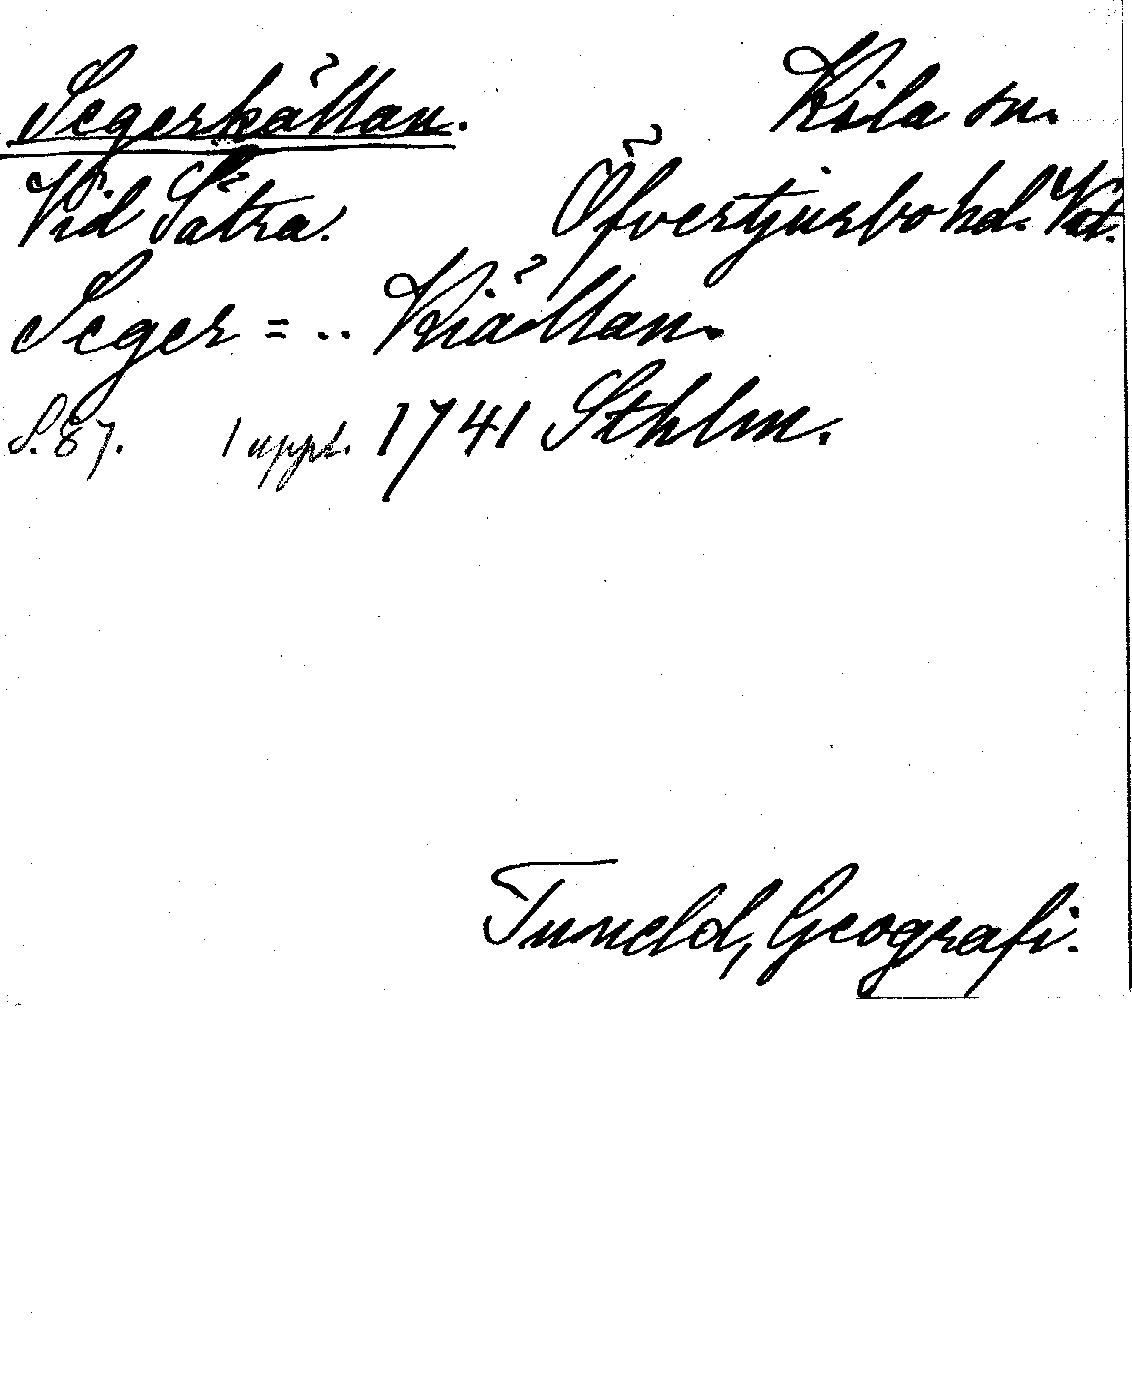 Segerkällan. Kila sn.
Vid Sätra. Öfvertjurbo hd. Vstm.
Seger = .. Kiällan.
S. 87. 1 uppl. 1741 Sthlm.
Tuneld, Geografi.